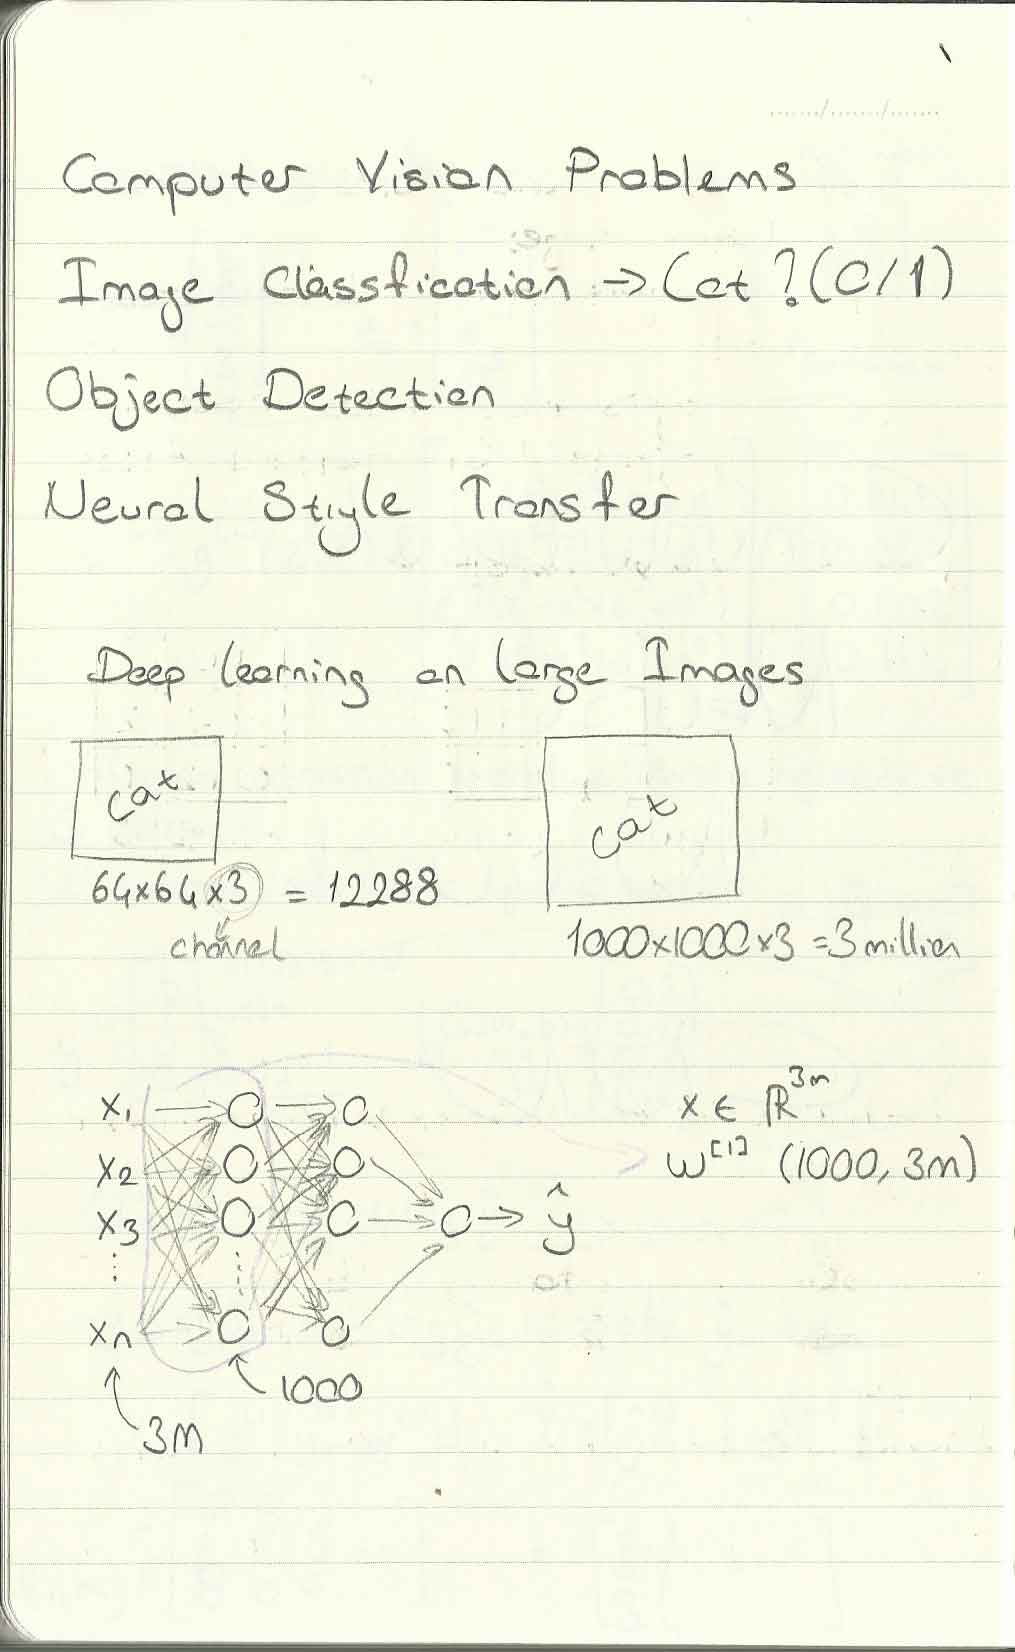 Computer Vision Problems
Image Classfication → Cat ? (0/1)
Object Detection
Neural Styyle Transfer
Deep learning on large Images
cat
cat
64x64x3 = 12288
channel
1000x1000x3 = 3 million
x1
x2
x3
⋮
xn
3M
1000
ŷ
x ∈ ℝ^3m
w^[1] (1000, 3m)